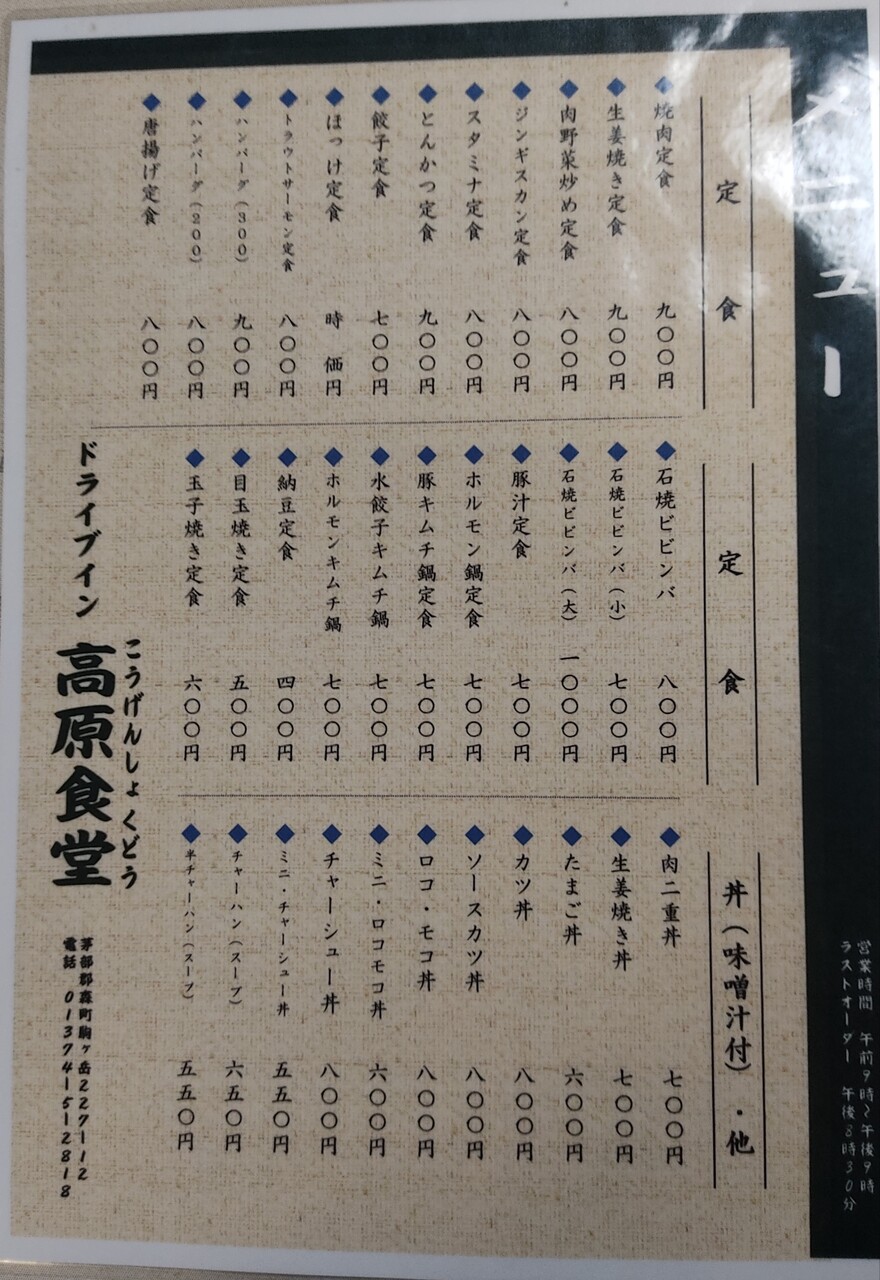 メニュー
営業時間 午前9時〜午後9時
ラストオーダー 午後8時30分
定食
◆焼肉定食 九〇〇円
◆生姜焼き定食 九〇〇円
◆肉野菜炒め定食 八〇〇円
◆ジンギスカン定食 八〇〇円
◆スタミナ定食 八〇〇円
◆とんかつ定食 九〇〇円
◆餃子定食 七〇〇円
◆ほっけ定食 時価円
◆トラウトサーモン定食 八〇〇円
◆ハンバーグ(300) 九〇〇円
◆ハンバーグ(200) 八〇〇円
◆唐揚げ定食 八〇〇円
定食
◆石焼ビビンバ 八〇〇円
◆石焼ビビンバ(小) 七〇〇円
◆石焼ビビンバ(大) 一〇〇〇円
◆豚汁定食 七〇〇円
◆ホルモン鍋定食 七〇〇円
◆豚キムチ鍋定食 七〇〇円
◆水餃子キムチ鍋 七〇〇円
◆ホルモンキムチ鍋 七〇〇円
◆納豆定食 四〇〇円
◆目玉焼き定食 五〇〇円
◆玉子焼き定食 六〇〇円
丼(味噌汁付)・他
◆肉二重丼 七〇〇円
◆生姜焼き丼 七〇〇円
◆たまご丼 六〇〇円
◆カツ丼 八〇〇円
◆ソースカツ丼 八〇〇円
◆ロコ・モコ丼 八〇〇円
◆ミニ・ロコモコ丼 六〇〇円
◆チャーシュー丼 八〇〇円
◆ミニ・チャーシュー丼 五五〇円
◆チャーハン(スープ) 六五〇円
◆半チャーハン(スープ) 五五〇円
こうげんしょくどう
ドライブイン 高原食堂
茅部郡森町駒ヶ岳227ー12
電話 01374ー5ー2818